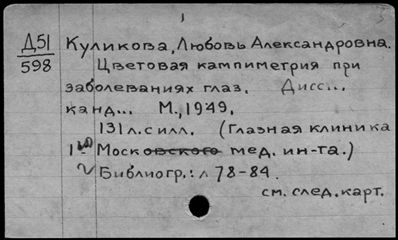 Д51
598
Куликова, Любовь Александровна.
Цветовая кампиметрия при
заболеваниях глаз. Дисс...
канд... М., 1949.
131 л. с илл. (Глазная клиника
1го Московского мед. ин-та.)
Библиогр.: л 78-84.
см. след. карт.